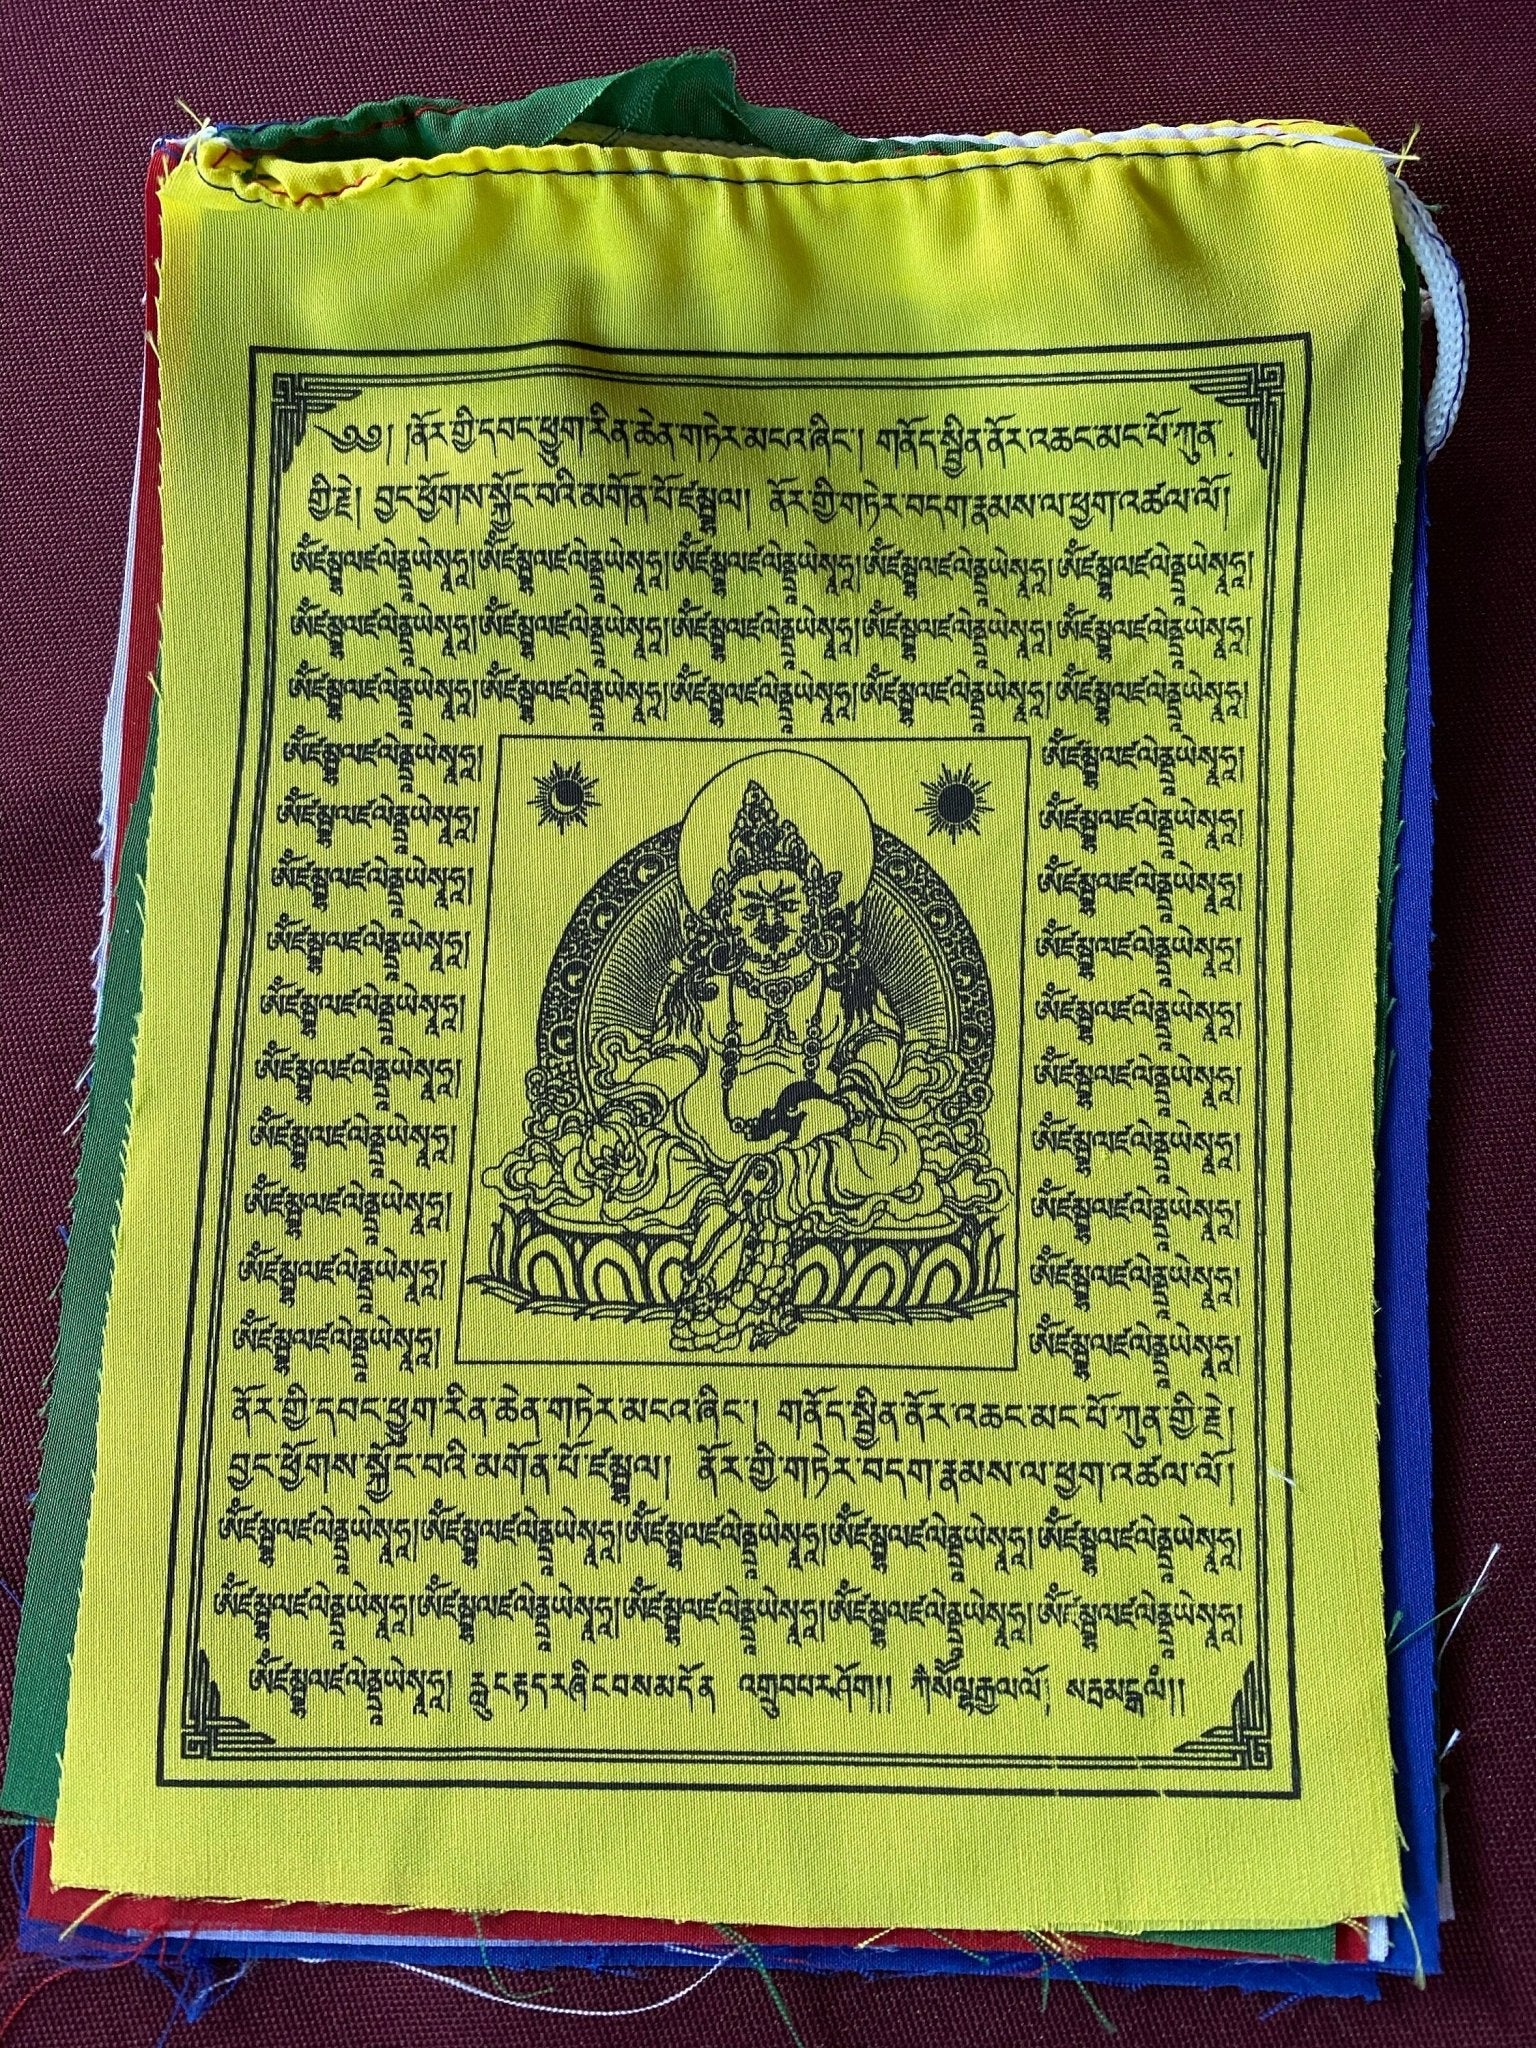 ༄༅། །ནོར་གྱི་དབང་ཕྱུག་རིན་ཆེན་གཏེར་མངའ་ཞིང་། གནོད་སྦྱིན་ནོར་འཆང་མང་པོ་ཀུན་
གྱི་རྗེ། བྱང་ཕྱོགས་སྐྱོང་བའི་མགོན་པོ་ཛམྦྷལ། ནོར་གྱི་གཏེར་བདག་རྣམས་ལ་ཕྱག་འཚལ་ལོ།
ཨོཾ་ཛམྦྷལ་ཛལེནྡྲཡེསྭཱཧཱ། ཨོཾ་ཛམྦྷལ་ཛལེནྡྲཡེསྭཱཧཱ། ཨོཾ་ཛམྦྷལ་ཛལེནྡྲཡེསྭཱཧཱ། ཨོཾ་ཛམྦྷལ་ཛལེནྡྲཡེསྭཱཧཱ། ཨོཾ་ཛམྦྷལ་ཛལེནྡྲཡེསྭཱཧཱ།
ཨོཾ་ཛམྦྷལ་ཛལེནྡྲཡེསྭཱཧཱ། ཨོཾ་ཛམྦྷལ་ཛལེནྡྲཡེསྭཱཧཱ། ཨོཾ་ཛམྦྷལ་ཛལེནྡྲཡེསྭཱཧཱ། ཨོཾ་ཛམྦྷལ་ཛལེནྡྲཡེསྭཱཧཱ། ཨོཾ་ཛམྦྷལ་ཛལེནྡྲཡེསྭཱཧཱ།
ཨོཾ་ཛམྦྷལ་ཛལེནྡྲཡེསྭཱཧཱ། ཨོཾ་ཛམྦྷལ་ཛལེནྡྲཡེསྭཱཧཱ། ཨོཾ་ཛམྦྷལ་ཛལེནྡྲཡེསྭཱཧཱ། ཨོཾ་ཛམྦྷལ་ཛལེནྡྲཡེསྭཱཧཱ། ཨོཾ་ཛམྦྷལ་ཛལེནྡྲཡེསྭཱཧཱ།
ཨོཾ་ཛམྦྷལ་ཛལེནྡྲཡེསྭཱཧཱ། ཨོཾ་ཛམྦྷལ་ཛལེནྡྲཡེསྭཱཧཱ།
ཨོཾ་ཛམྦྷལ་ཛལེནྡྲཡེསྭཱཧཱ། ཨོཾ་ཛམྦྷལ་ཛལེནྡྲཡེསྭཱཧཱ།
ཨོཾ་ཛམྦྷལ་ཛལེནྡྲཡེསྭཱཧཱ། ཨོཾ་ཛམྦྷལ་ཛལེནྡྲཡེསྭཱཧཱ།
ཨོཾ་ཛམྦྷལ་ཛལེནྡྲཡེསྭཱཧཱ། ཨོཾ་ཛམྦྷལ་ཛལེནྡྲཡེསྭཱཧཱ།
ཨོཾ་ཛམྦྷལ་ཛལེནྡྲཡེསྭཱཧཱ། ཨོཾ་ཛམྦྷལ་ཛལེནྡྲཡེསྭཱཧཱ།
ཨོཾ་ཛམྦྷལ་ཛལེནྡྲཡེསྭཱཧཱ། ཨོཾ་ཛམྦྷལ་ཛལེནྡྲཡེསྭཱཧཱ།
ཨོཾ་ཛམྦྷལ་ཛལེནྡྲཡེསྭཱཧཱ། ཨོཾ་ཛམྦྷལ་ཛལེནྡྲཡེསྭཱཧཱ།
ཨོཾ་ཛམྦྷལ་ཛལེནྡྲཡེསྭཱཧཱ། ཨོཾ་ཛམྦྷལ་ཛལེནྡྲཡེསྭཱཧཱ།
ཨོཾ་ཛམྦྷལ་ཛལེནྡྲཡེསྭཱཧཱ། ཨོཾ་ཛམྦྷལ་ཛལེནྡྲཡེསྭཱཧཱ།
ཨོཾ་ཛམྦྷལ་ཛལེནྡྲཡེསྭཱཧཱ། ཨོཾ་ཛམྦྷལ་ཛལེནྡྲཡེསྭཱཧཱ།
ནོར་གྱི་དབང་ཕྱུག་རིན་ཆེན་གཏེར་མངའ་ཞིང་། གནོད་སྦྱིན་ནོར་འཆང་མང་པོ་ཀུན་གྱི་རྗེ།
བྱང་ཕྱོགས་སྐྱོང་བའི་མགོན་པོ་ཛམྦྷལ། ནོར་གྱི་གཏེར་བདག་རྣམས་ལ་ཕྱག་འཚལ་ལོ།
ཨོཾ་ཛམྦྷལ་ཛལེནྡྲཡེསྭཱཧཱ། ཨོཾ་ཛམྦྷལ་ཛལེནྡྲཡེསྭཱཧཱ། ཨོཾ་ཛམྦྷལ་ཛལེནྡྲཡེསྭཱཧཱ། ཨོཾ་ཛམྦྷལ་ཛལེནྡྲཡེསྭཱཧཱ། ཨོཾ་ཛམྦྷལ་ཛལེནྡྲཡེསྭཱཧཱ།
ཨོཾ་ཛམྦྷལ་ཛལེནྡྲཡེསྭཱཧཱ། ཨོཾ་ཛམྦྷལ་ཛལེནྡྲཡེསྭཱཧཱ། ཨོཾ་ཛམྦྷལ་ཛལེནྡྲཡེསྭཱཧཱ། ཨོཾ་ཛམྦྷལ་ཛལེནྡྲཡེསྭཱཧཱ། ཨོཾ་ཛམྦྷལ་ཛལེནྡྲཡེསྭཱཧཱ།
ཨོཾ་ཛམྦྷལ་ཛལེནྡྲཡེསྭཱཧཱ། རླུང་རྟ་དར་ཞིང་བསམ་དོན འགྲུབ་པར་ཤོག།།